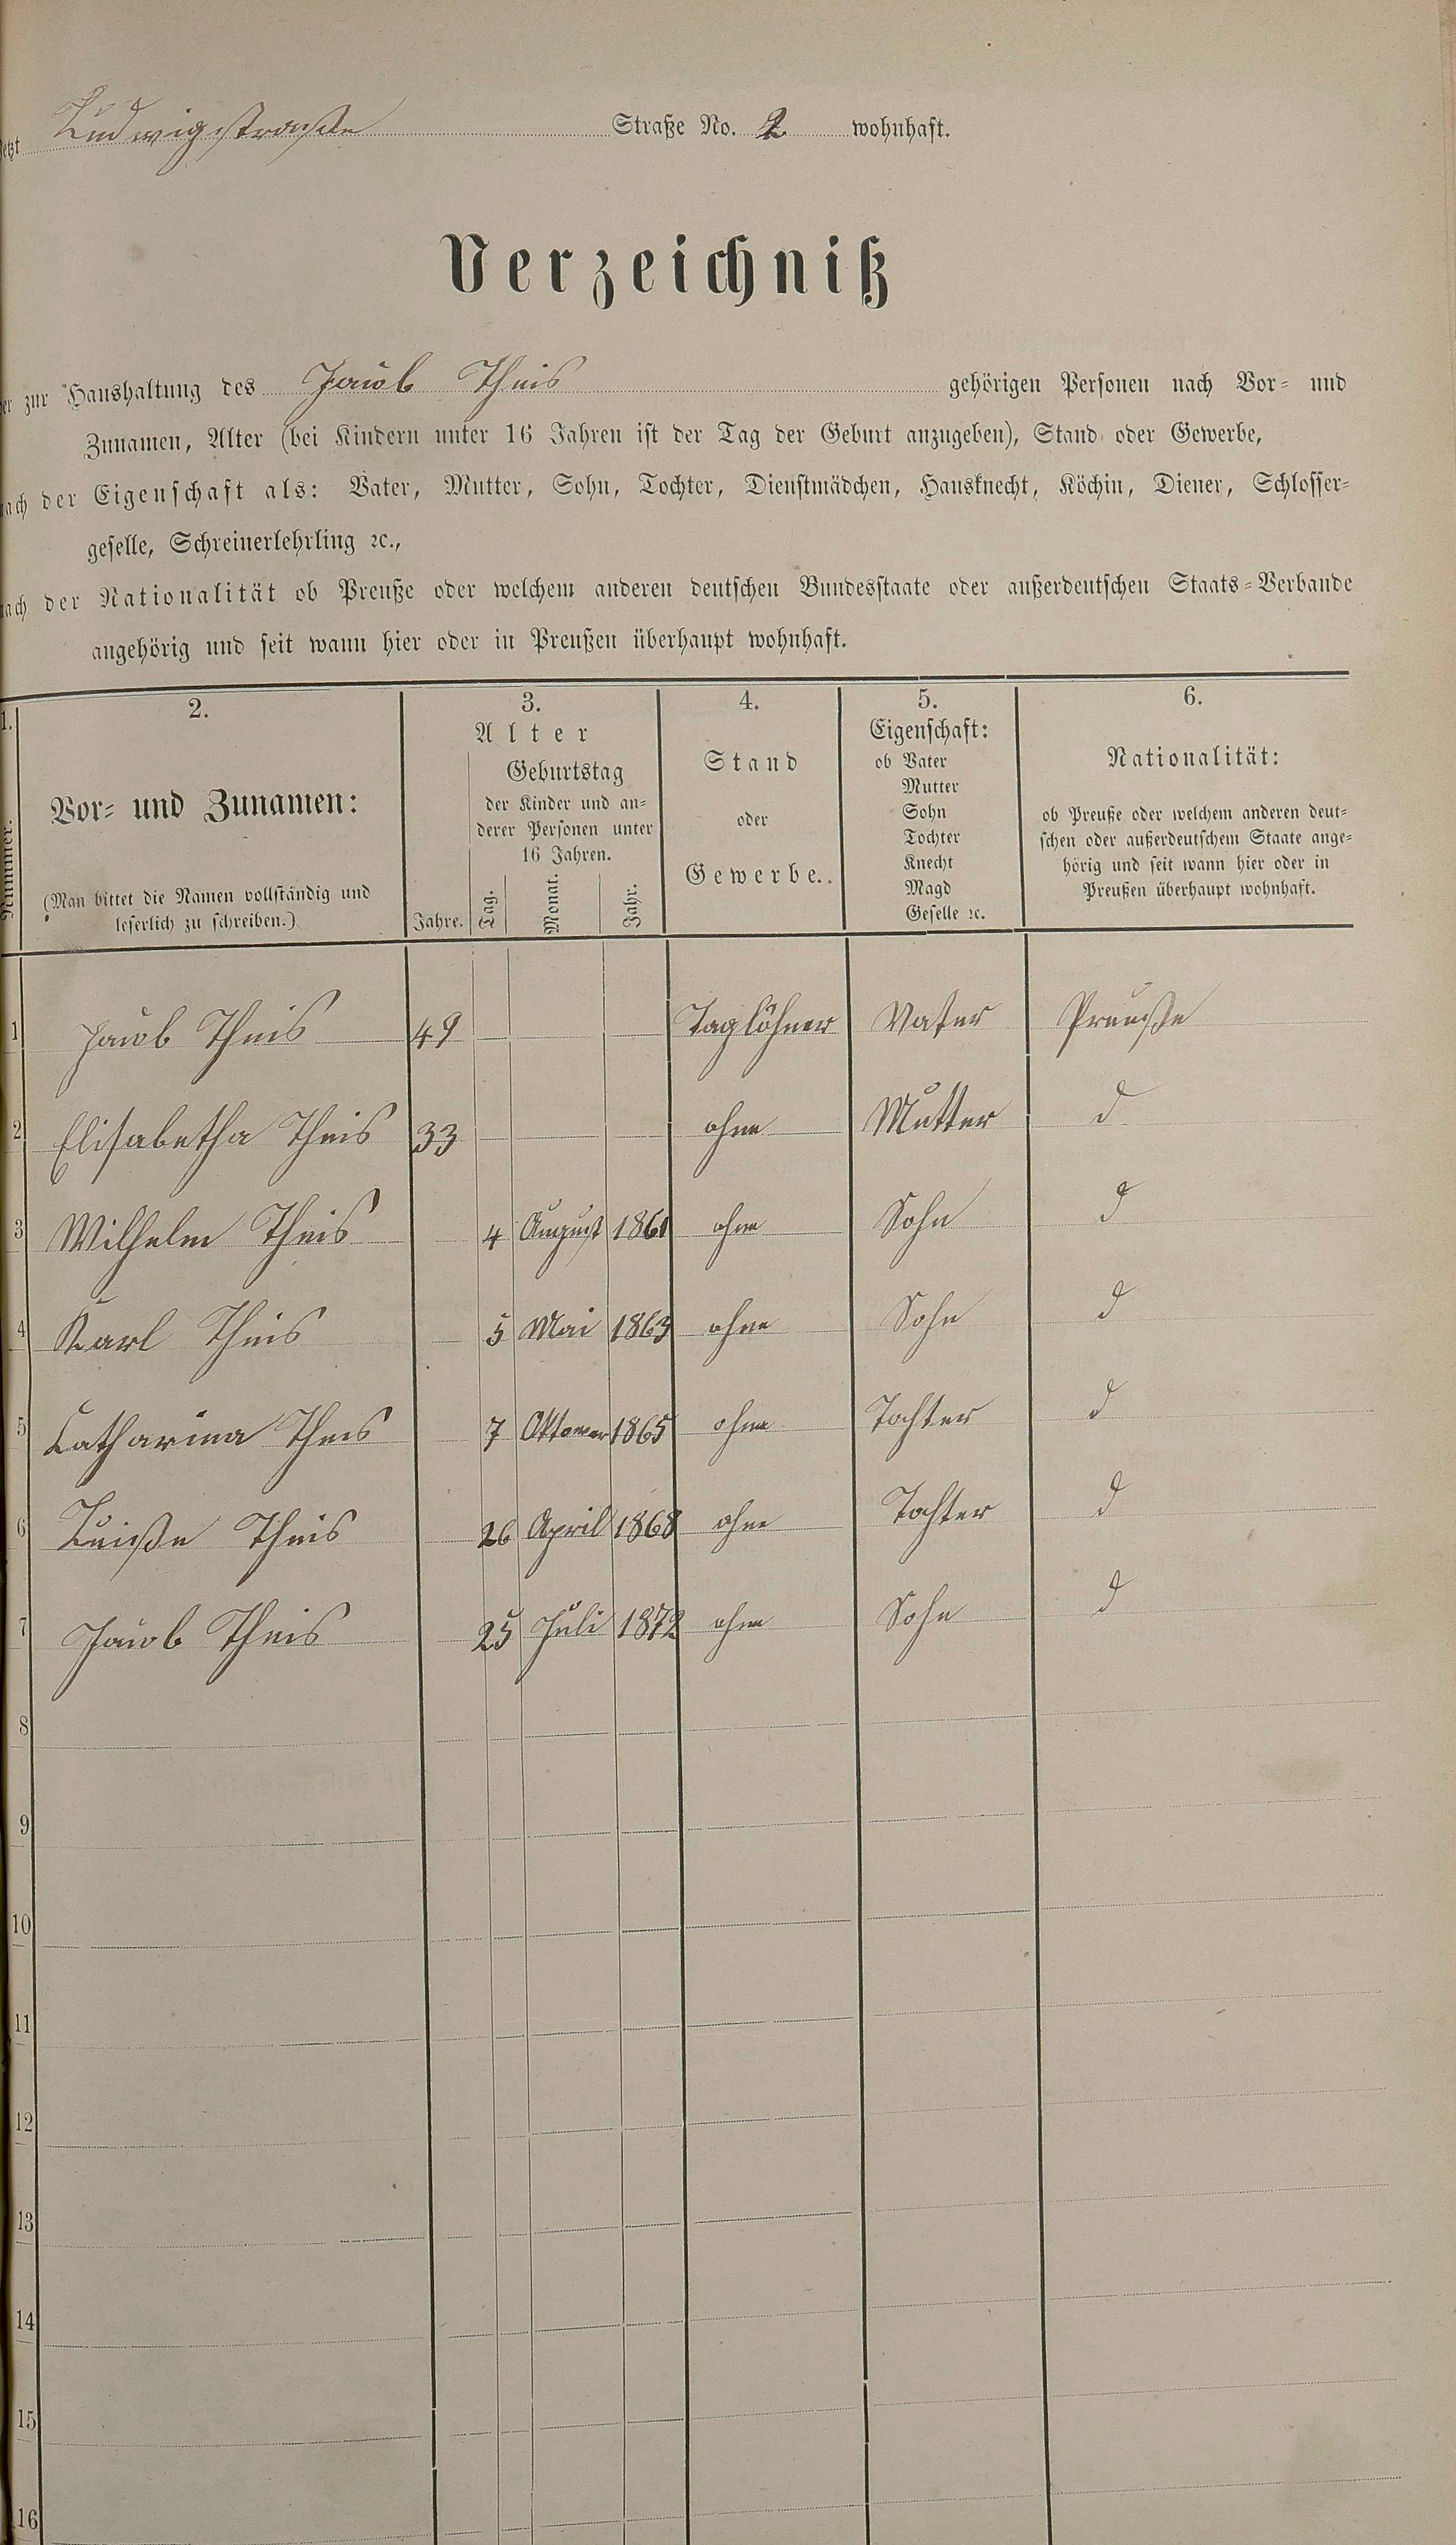 jetzt Ludwigstraße Straße No. 2 wohnhaft.
Verzeichniß
der zur Haushaltung des Jacob Theis gehörigen Personen nach Vor- und
Zunamen, Alter (bei Kindern unter 16 Jahren ist der Tag der Geburt anzugeben), Stand oder Gewerbe,
nach der Eigenschaft als: Vater, Mutter, Sohn, Tochter, Dienstmädchen, Hausknecht, Köchin, Diener, Schlosser-
geselle, Schreinerlehrling ꝛc.,
nach der Nationalität ob Preuße oder welchem anderen deutschen Bundesstaate oder außerdeutschen Staats-Verbande
angehörig und seit wann hier oder in Preußen überhaupt wohnhaft.
1.
Nummer.
2.
Vor- und Zunamen:
(Man bittet die Namen vollständig und
leserlich zu schreiben.)
3.
Alter
Geburtstag
der Kinder und an-
derer Personen unter
16 Jahren.
Jahre. Tag. Monat. Jahr.
4.
Stand
oder
Gewerbe.
5.
Eigenschaft:
ob Vater
Mutter
Sohn
Tochter
Knecht
Magd
Geselle ꝛc.
6.
Nationalität:
ob Preuße oder welchem anderen deut-
schen oder außerdeutschem Staate ange-
hörig und seit wann hier oder in
Preußen überhaupt wohnhaft.
1 Jacob Theis 49 Taglöhner Vater Preuße
2 Elisabetha Theis 33 ohne Mutter d
3 Wilhelm Theis 4 August 1861 ohne Sohn d
4 Karl Theis 5 Mai 1863 ohne Sohn d
5 Catharina Theis 7 1865 ohne Tochter d
6 Luiße Theis 26 April 1868 ohne Tochter d
7 Jacob Theis 25 Juli 1872 ohne Sohn d
8
9
10
11
12
13
14
15
16